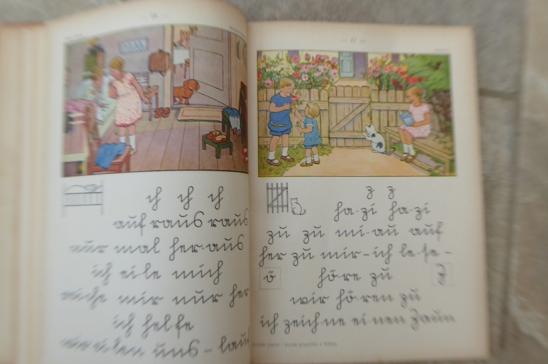 ich ich ich
auf raus raus
nur mal her-aus
ich ei-le mich
mir nur her
ich hel-fe
uns - lau
z z
ha-zi ha-zi
zu zu mi-au auf
her zu mir - ich le-se-
ö hö-re zu z
wir hö-ren zu
ich zeich-ne ei-nen Zaun